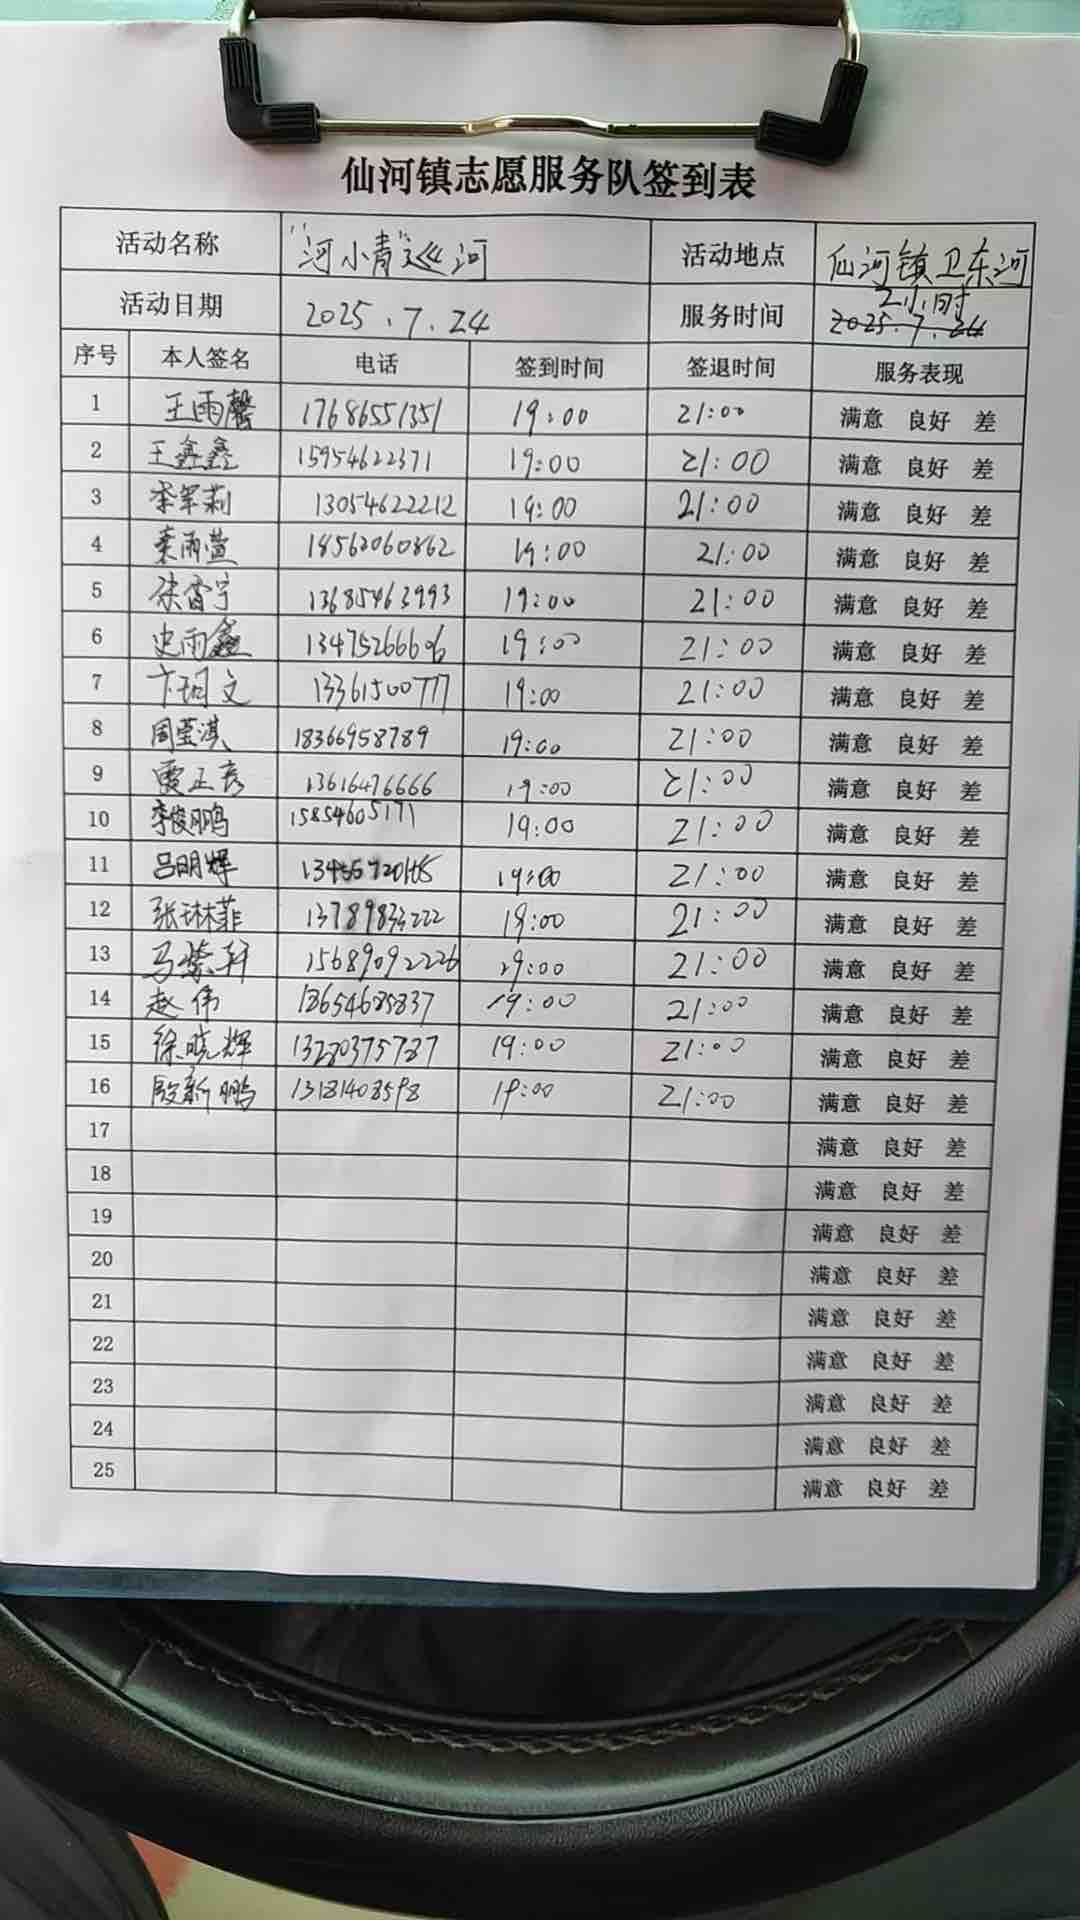 仙河镇志愿服务队签到表
活动名称 "河小青"巡河 活动地点 仙河镇卫东河
活动日期 2025.7.24 服务时间 2小时 2025.7.24
序号 本人签名 电话 签到时间 签退时间 服务表现
1 王雨馨 17686551351 19:00 21:00 满意 良好 差
2 王鑫鑫 15954622371 19:00 21:00 满意 良好 差
3 李军莉 13054622212 19:00 21:00 满意 良好 差
4 雨萱 18562060862 19:00 21:00 满意 良好 差
5 张雪宁 13685463993 19:00 21:00 满意 良好 差
6 史雨鑫 13475266606 19:00 21:00 满意 良好 差
7 卞珂文 13361500777 19:00 21:00 满意 良好 差
8 周莹淇 18366958789 19:00 21:00 满意 良好 差
9 贾正彦 13616476666 19:00 21:00 满意 良好 差
10 李俊鹏 15854605171 19:00 21:00 满意 良好 差
11 吕明辉 19:00 21:00 满意 良好 差
12 张琳菲 13789833222 19:00 21:00 满意 良好 差
13 马紫轩 15689092226 19:00 21:00 满意 良好 差
14 赵伟 18654685837 19:00 21:00 满意 良好 差
15 徐晓辉 13280375787 19:00 21:00 满意 良好 差
16 殷新鹏 13181408598 19:00 21:00 满意 良好 差
17 满意 良好 差
18 满意 良好 差
19 满意 良好 差
20 满意 良好 差
21 满意 良好 差
22 满意 良好 差
23 满意 良好 差
24 满意 良好 差
25 满意 良好 差